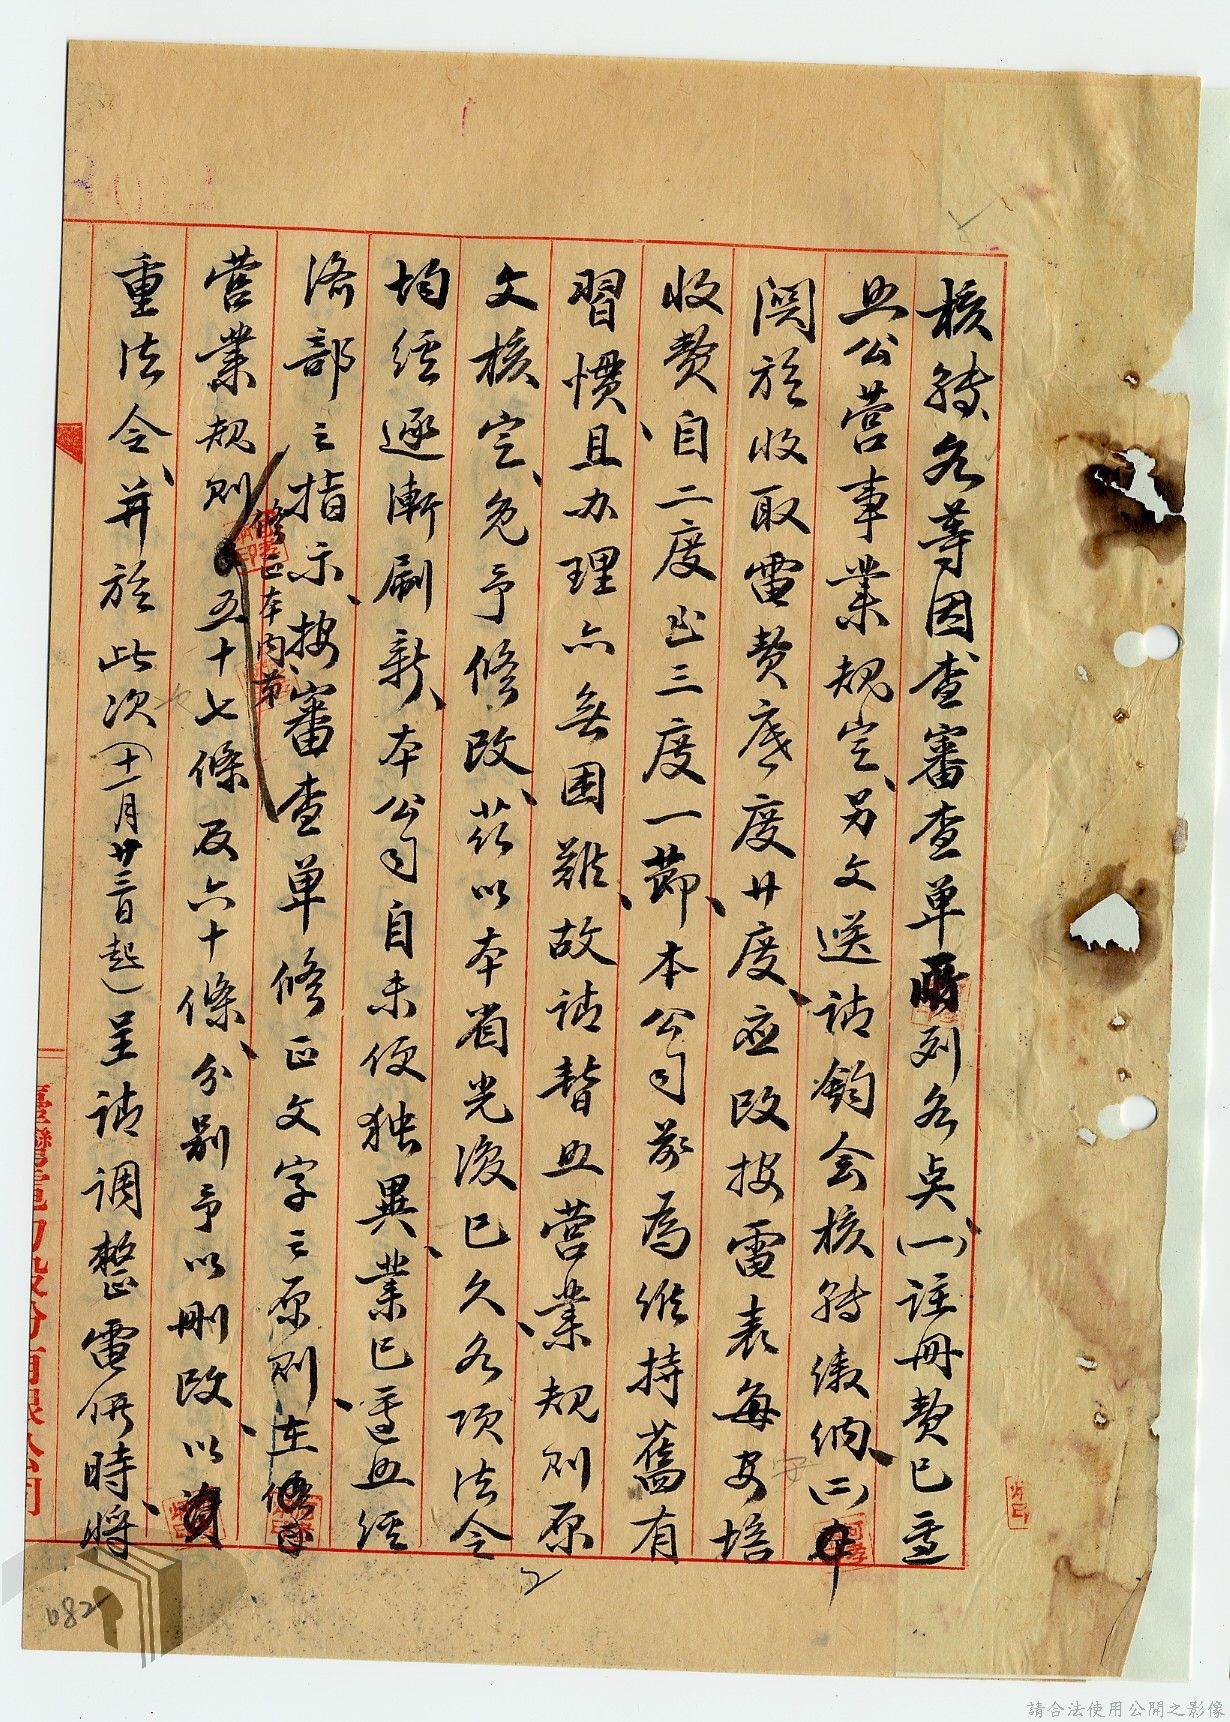 核轉各等因查審查單所列各点(一)註冊費已遵
照公營事業規定、另文送請鈞会核轉繳納、(二)
関於收取電費底度廿度、应改按電表每安培
收費、自二度至三度一節、本公司前為維持舊有
習慣且办理亦無困難、故請暫照營業規則原
文核定、免予修改、茲以本省光復已久各項法令
均經逐漸刷新、本公司自未便独異、業已遵照經
濟部之指示、按審查單修正文字之原則、在
修正本內第
營業規則五十七條及六十條、分别予以刪改、以資
重法令、并於此次(十一月廿三日起)呈請調整電價時、將
臺灣電力股份有限公司
安
2
082
請合法使用公開之影像